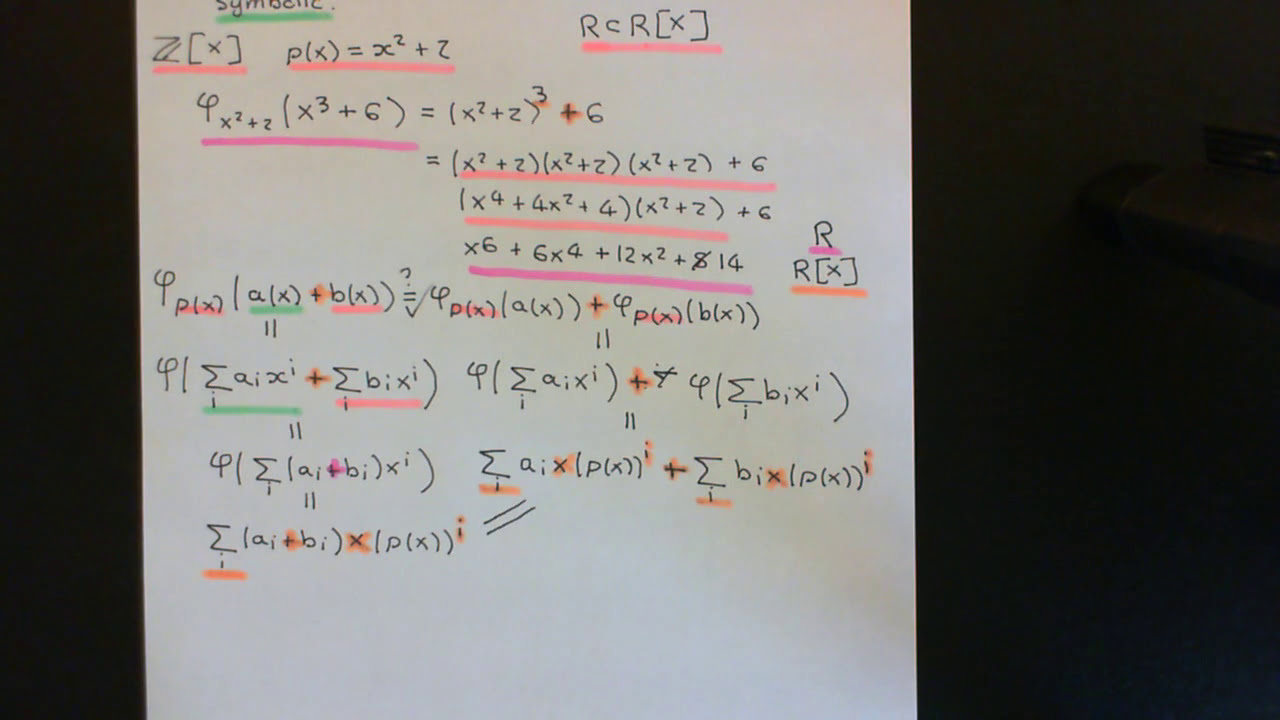 symbolic.
ℤ[x] p(x) = x² + 2 R ⊂ R[x]
φ_{x²+2}(x³ + 6) = (x²+2)³ + 6
= (x² + 2)(x² + 2)(x² + 2) + 6
(x⁴ + 4x² + 4)(x² + 2) + 6
x⁶ + 6x⁴ + 12x² + 8 14
R
R[x]
φ_{p(x)}(a(x) + b(x)) ≟ √ φ_{p(x)}(a(x)) + φ_{p(x)}(b(x))
|| ||
φ(∑_i a_i x^i + ∑_i b_i x^i) φ(∑_i a_i x^i) + φ(∑_i b_i x^i)
|| ||
φ(∑_i (a_i + b_i) x^i) ∑_i a_i × (p(x))^i + ∑_i b_i × (p(x))^i
||
∑_i (a_i + b_i) × (p(x))^i //